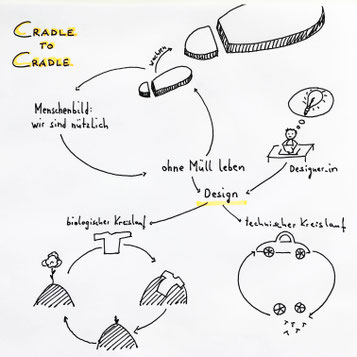 CRADLE
TO
CRADLE
wachsen
Menschenbild:
wir sind nützlich
ohne Müll leben
Designer:in
Design
biologischer Kreislauf
technischer Kreislauf